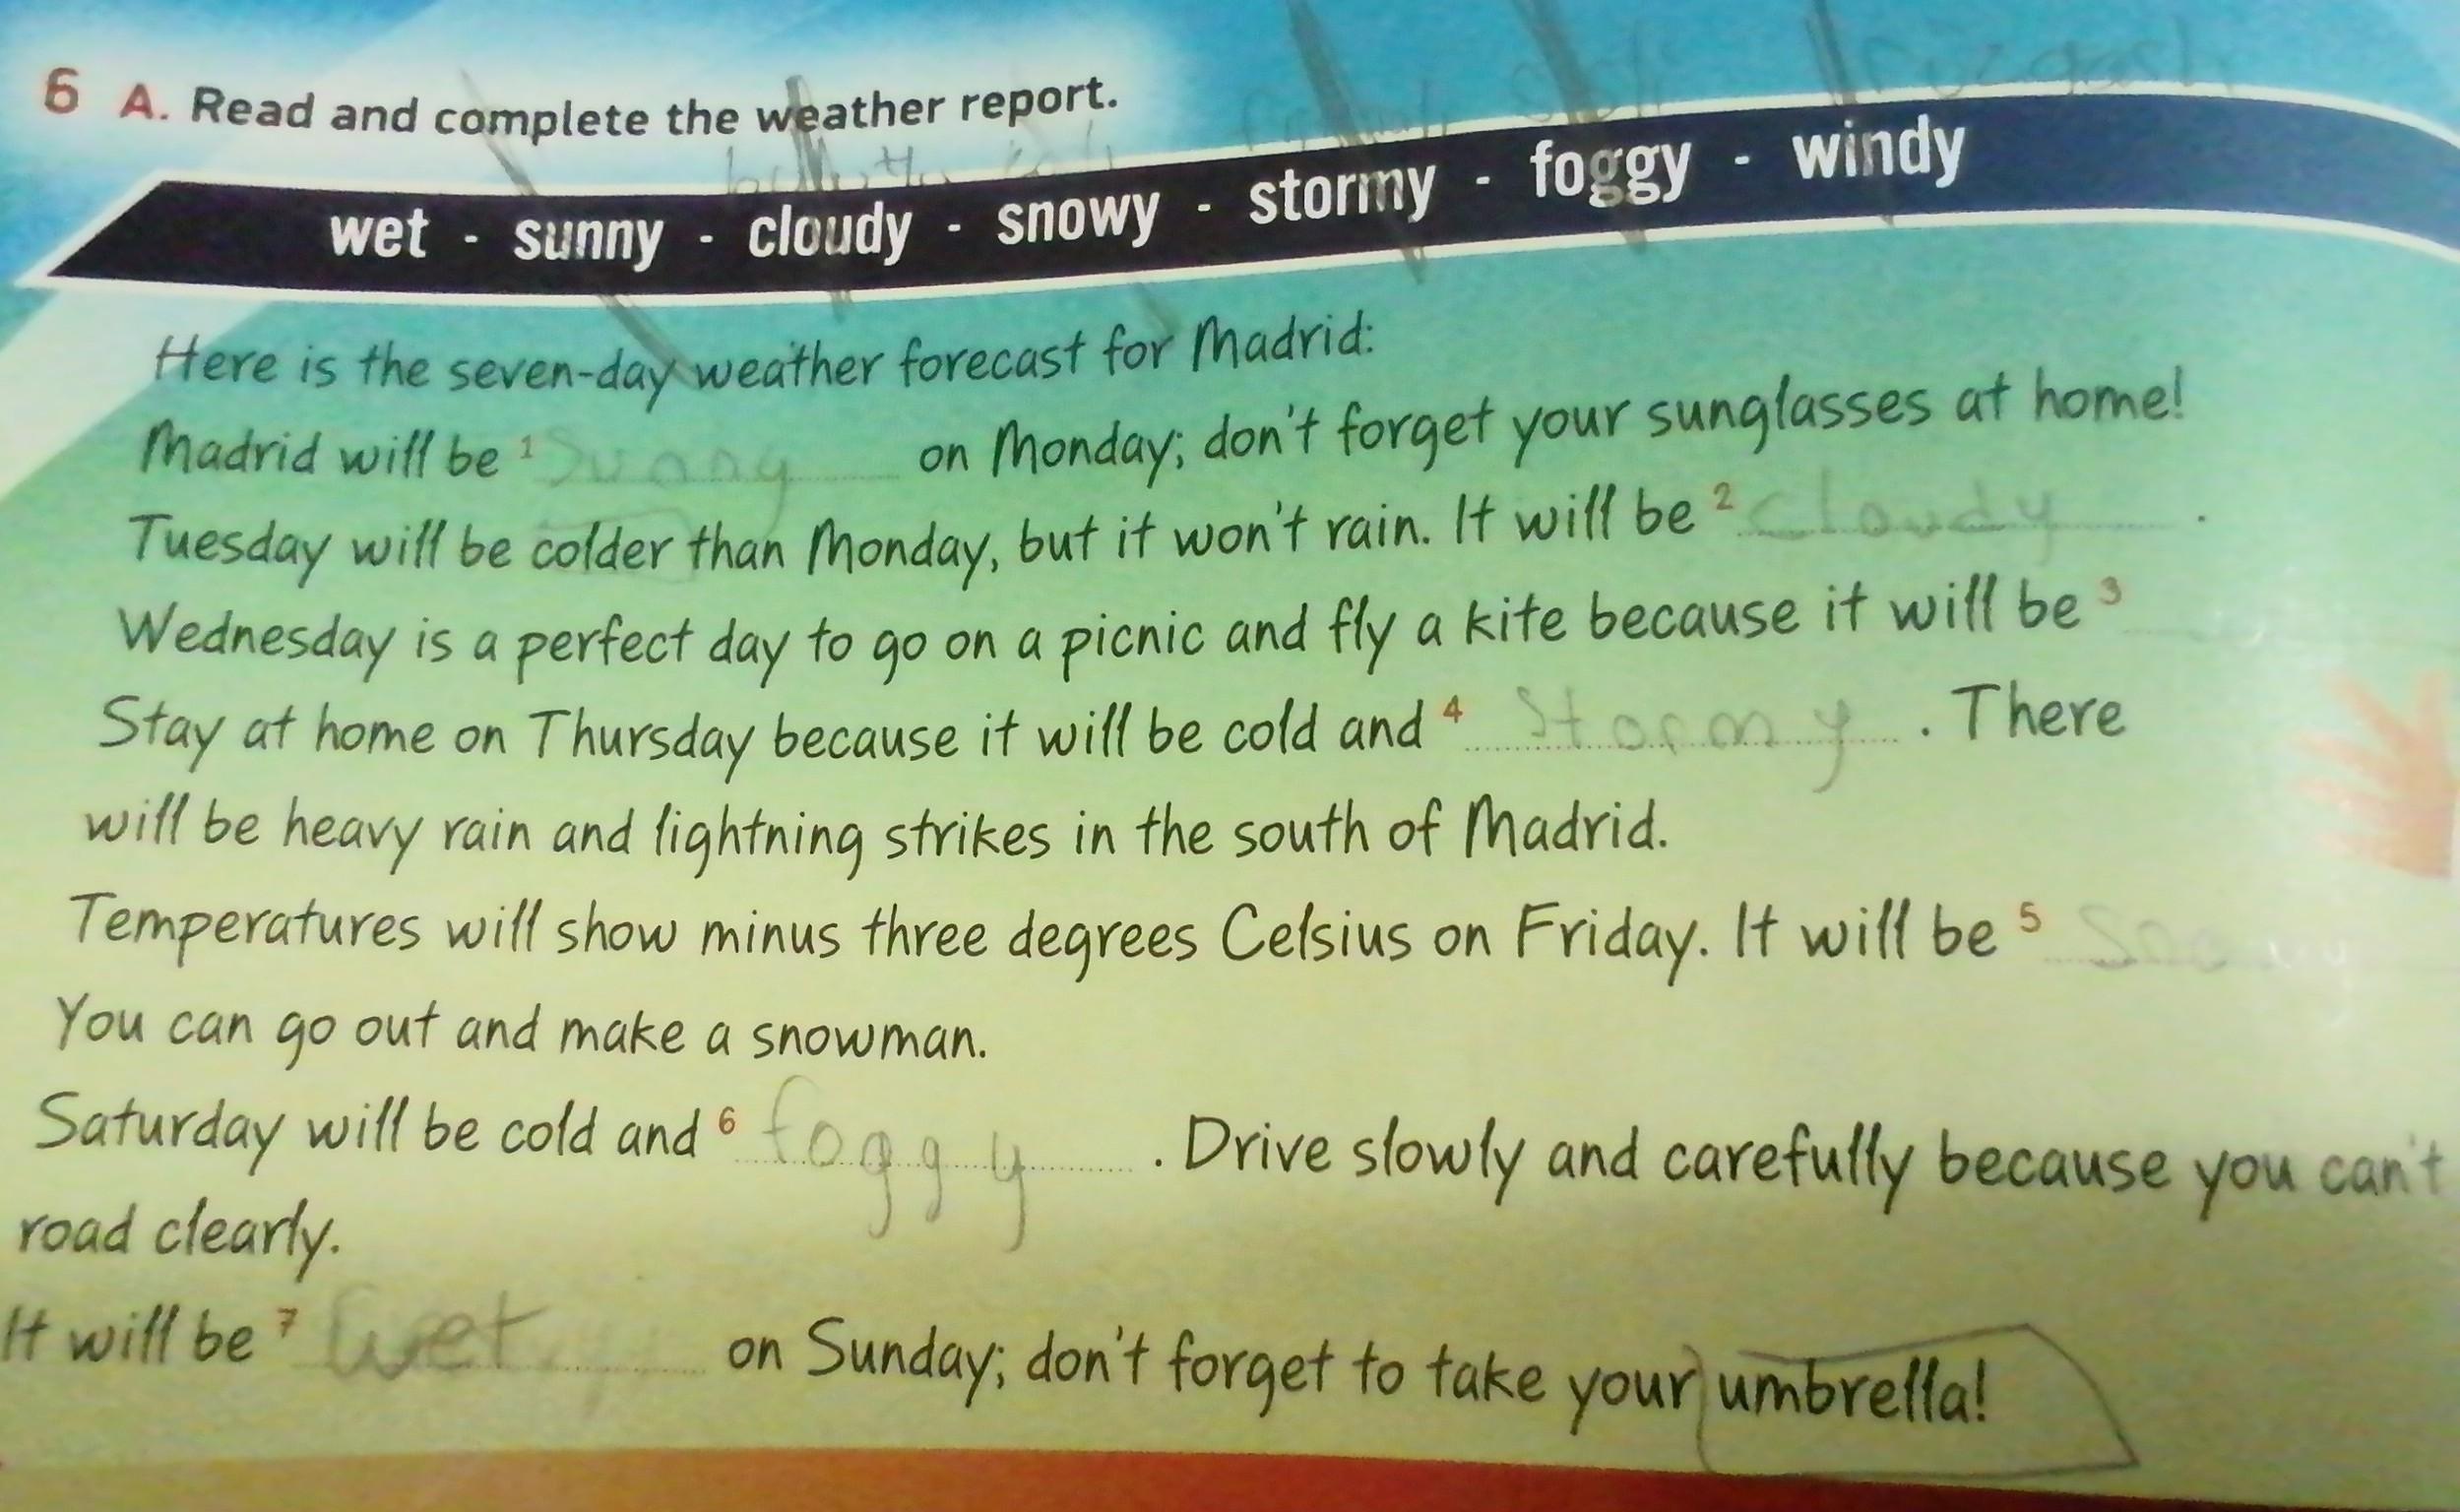 6 A. Read and complete the weather report.
wet - sunny - cloudy - snowy - stormy - foggy - windy
Here is the seven-day weather forecast for Madrid:
Madrid will be ¹ Sunny on Monday; don't forget your sunglasses at home!
Tuesday will be colder than Monday, but it won't rain. It will be ² cloudy .
Wednesday is a perfect day to go on a picnic and fly a kite because it will be ³
Stay at home on Thursday because it will be cold and ⁴ Stormy . There
will be heavy rain and lightning strikes in the south of Madrid.
Temperatures will show minus three degrees Celsius on Friday. It will be ⁵
You can go out and make a snowman.
Saturday will be cold and ⁶ foggy . Drive slowly and carefully because you can't
road clearly.
It will be ⁷ wet on Sunday; don't forget to take your umbrella!